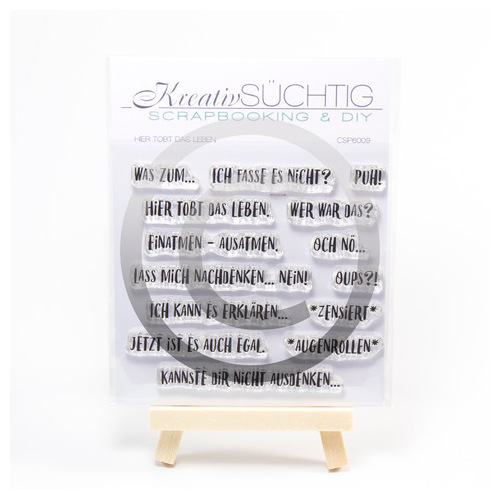 KreativSÜCHTIG
SCRAPBOOKING & DIY
HIER TOBT DAS LEBEN CSP6009
WAS ZUM... ICH FASSE ES NICHT? PUH!
HIER TOBT DAS LEBEN. WER WAR DAS?
EINATMEN - AUSATMEN. OCH NÖ...
LASS MICH NACHDENKEN... NEIN! OUPS?!
ICH KANN ES ERKLÄREN... *ZENSIERT*
JETZT IST ES AUCH EGAL. *AUGENROLLEN*
KANNSTE DIR NICHT AUSDENKEN...